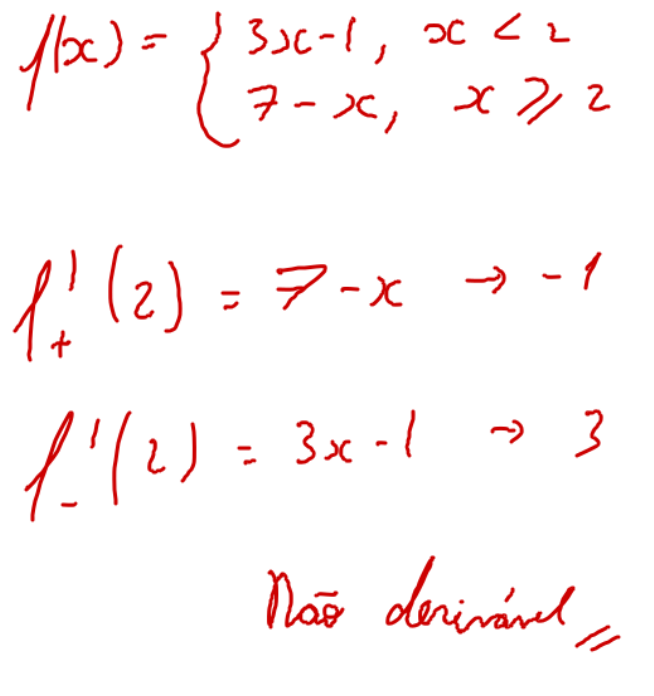 f(x) = { 3x-1, x < 2
7-x, x ⩾ 2
f'₊(2) = 7-x → -1
f'₋(2) = 3x-1 → 3
Não derivável